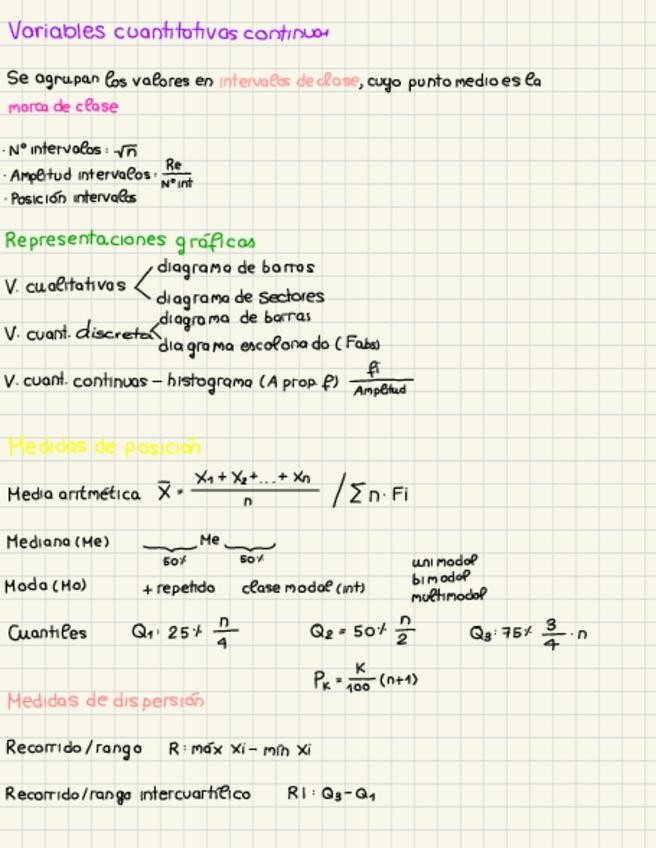 Variables cuantitativas continuas
Se agrupan los valores en intervalos de clase, cuyo punto medio es la
marca de clase
· Nº intervalos: √n
· Amplitud intervalos: Re / Nº int
· Posición intervalos
Representaciones gráficas
V. cualitativas < diagrama de barras
diagrama de sectores
V. cuant. discreta < diagrama de barras
diagrama escalonado (Fabs)
V. cuant. continuas – histograma (A prop. f) fi / Amplitud
Medidas de posición
Media aritmética X̄ = X₁ + X₂ + ... + Xn / n / ∑ n · Fi
Mediana (Me) Me
50% 50%
Moda (Mo) + repetido clase modal (int) unimodal
bimodal
multimodal
Cuantiles Q₁: 25% n/4 Q₂ = 50% n/2 Q₃: 75% 3/4 · n
Pk = K/100 (n+1)
Medidas de dispersión
Recorrido/rango R: máx xi – mín xi
Recorrido/rango intercuartílico RI: Q₃ – Q₁